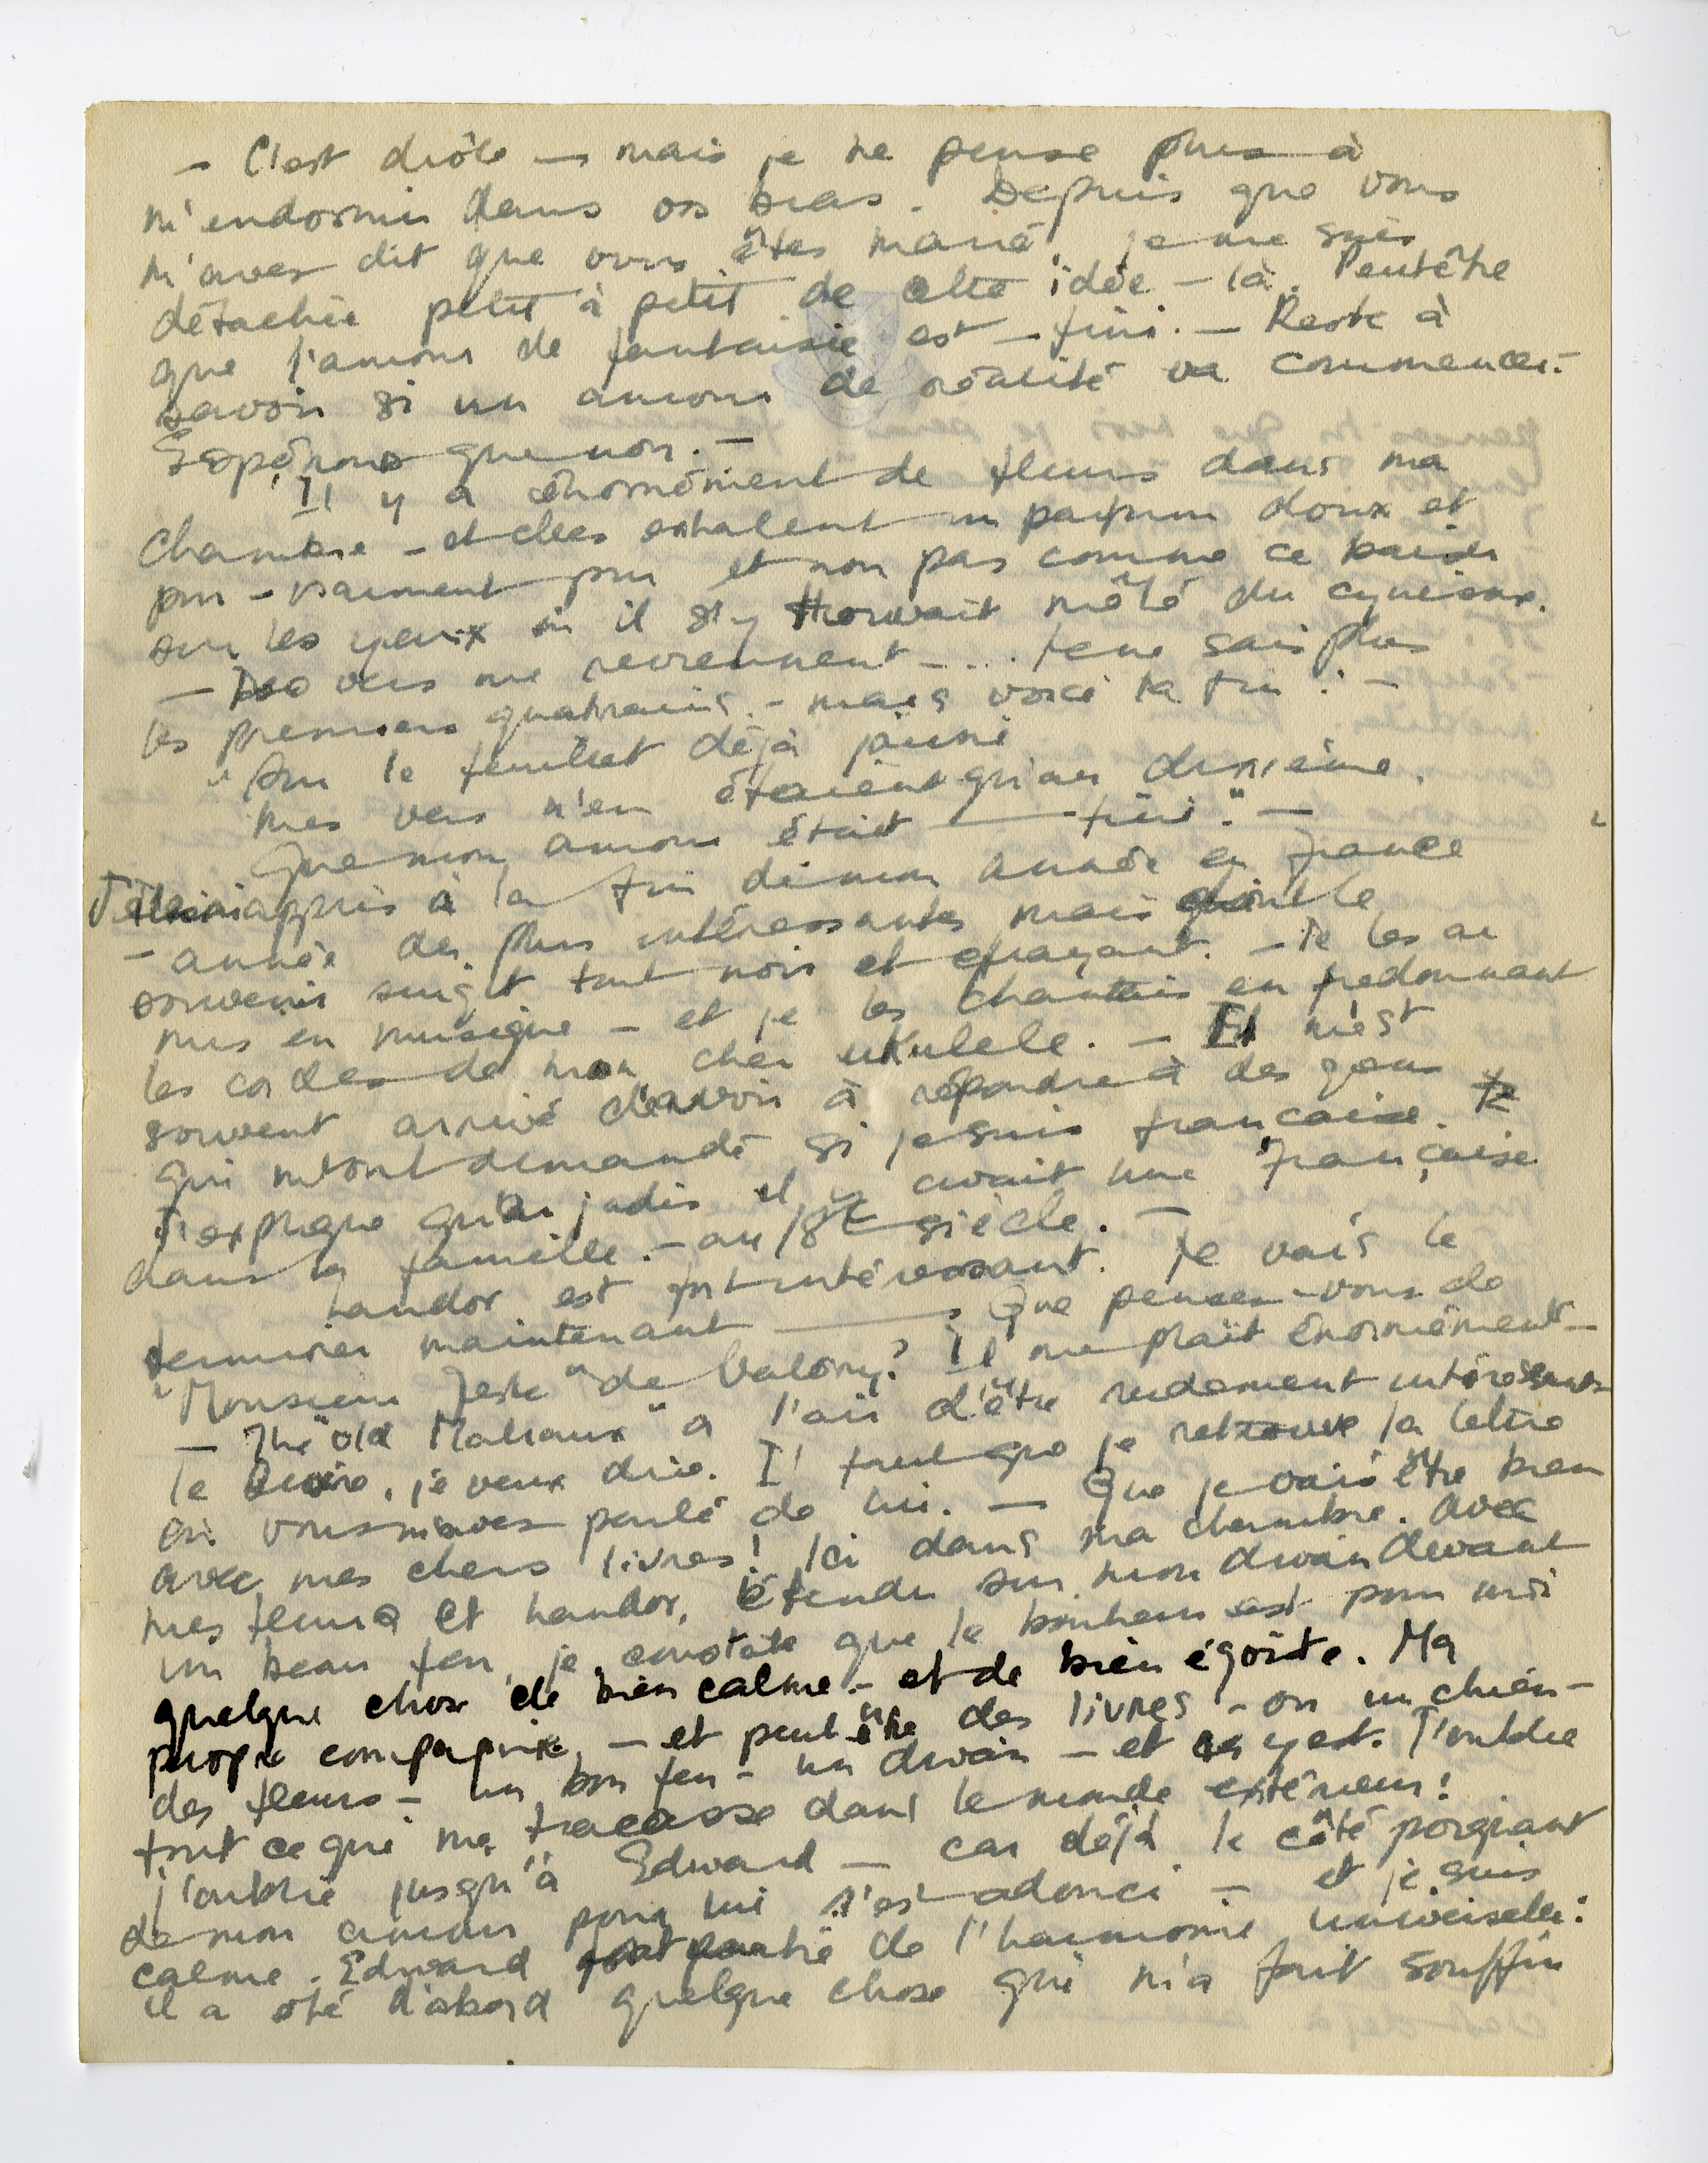 - C'est drôle - mais je ne pense plus à
m'endormir dans vos bras. Depuis que vous
m'avez dit que vous êtes marié, je me suis
détachée petit à petit de cette idée - là. Peutêtre
que l'amour de fantaisie est - fini. - Reste à
savoir si un amour de réalité va commencer. -
Espérons que non. -
Il y a énormément de fleurs dans ma
chambre - et elles exhalent un parfum doux et
pur - vraiment pur et non pas comme ce baiser
sur les yeux où il s'y trouvait mêlé du cynisme.
- Des vers me reviennent - ... je ne sais plus
les premiers quatrains. - mais voici la fin : -
"Sur le feuillet déjà jauni
mes vers n'en étaient qu'au dixième,
Que mon amour était — fini." -
J'étais à la fin de mon année en France
- année des plus intéressantes mais dont le
souvenir surgit tout noir et efrayant. - Je les ai
mis en musique - et je les chantais en fredonnant
les cordes de mon cher ukulele. - Il m'est
souvent arrivé d'avoir à répondre à des gens
qui m'ont demandé si je suis francaise. Je
J'explique qu'au jadis il y avait une Française
dans la famille. - au 18e siècle. -
Landor est fort intéressant. Je vais le
terminer maintenant — Que pensez-vous de
"Monsieur Teste" de Valéry? Il me plaît énormément -
- The "old Malraux" a l'air d'être rudement intéressant
le livre, je veux dire. Il faut que je retrouve la lettre
où vous m'avez parlé de lui. - Que je vais être bien
avec mes chers livres! Ici dans ma chambre. avec
mes fleurs et Landor, étendu sur mon divan devant
un beau feu, je constate que le bonheur est pour moi
quelque chose de bien calme - et de bien égoïste. Ma
propre compagnie, - et peut être des livres - ou un chien -
des fleurs - un bon feu - un divan - et ça y est. J'oublie
tout ce qui me tracasse dans le monde extérieur!
J'oublie jusqu'à Edward - car déjà le côté poignant
de mon amour pour lui s'est adouci - et je suis
calme. Edward fait partie de l'harmonie universelle:
il a été d'abord quelque chose qui m'a fait souffrir